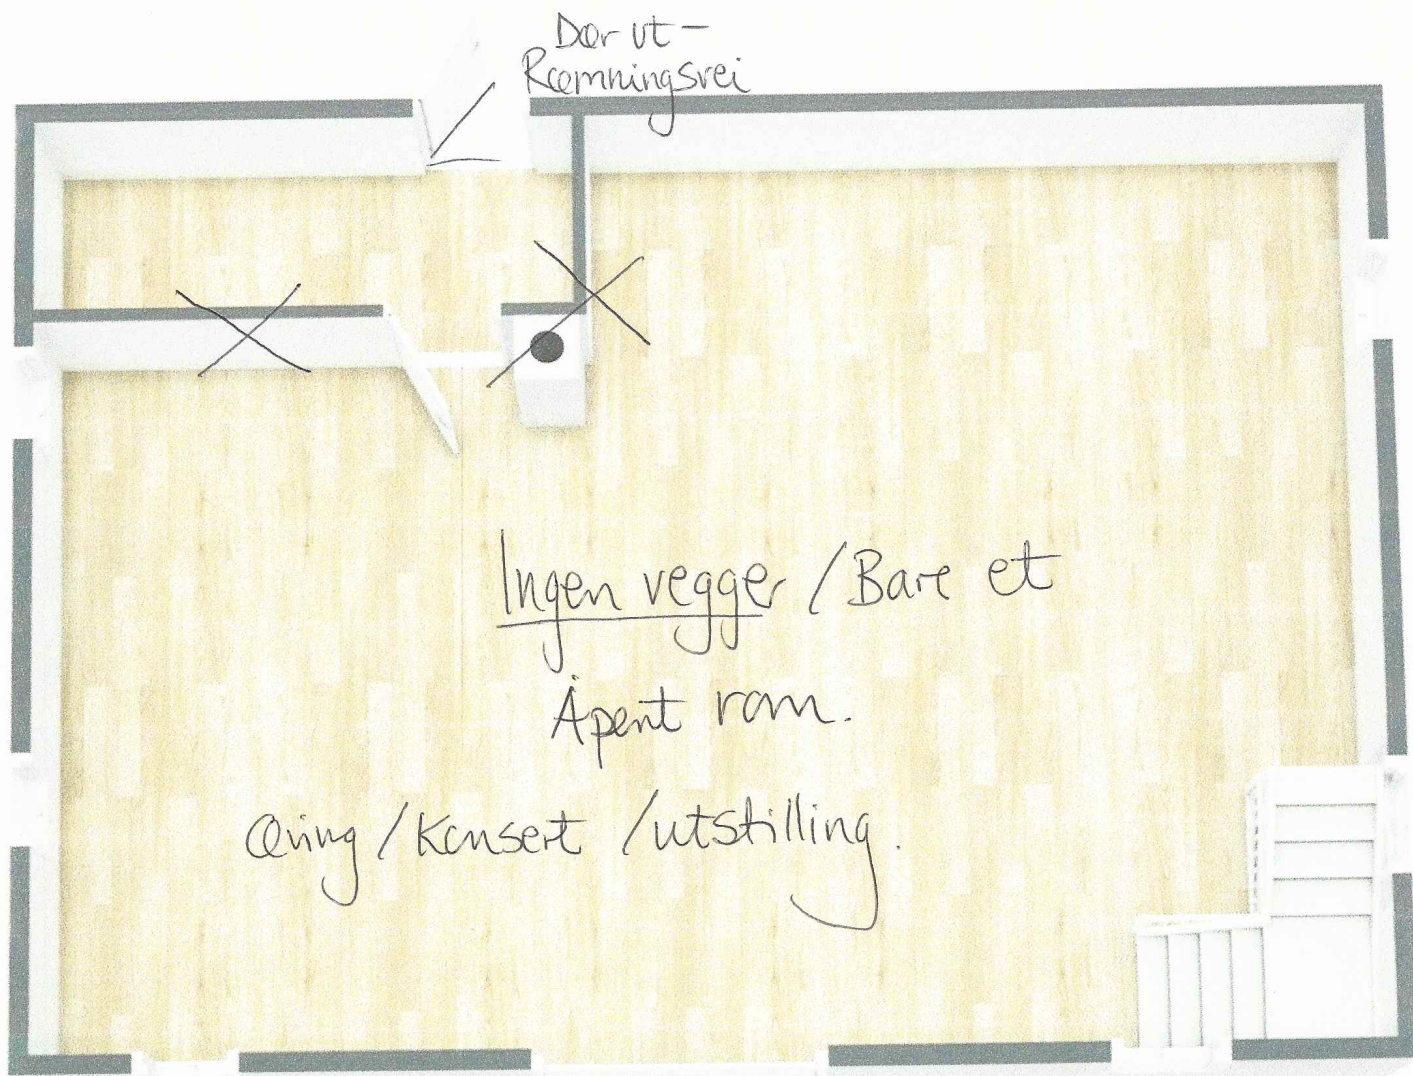 Dør ut -
Rømningsvei
Ingen vegger / Bare et
Åpent rom.
Øving / Konsert / utstilling.